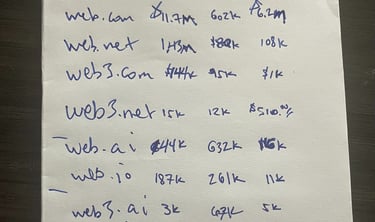 web.com $11.7m 602k $6.2m
web.net 1.13m 108k
web3.com $144k 95k $1k
web3.net 15k 12k $510.00
web.ai 632k
web.io 187k 261k 11k
web3.ai 3k 5k